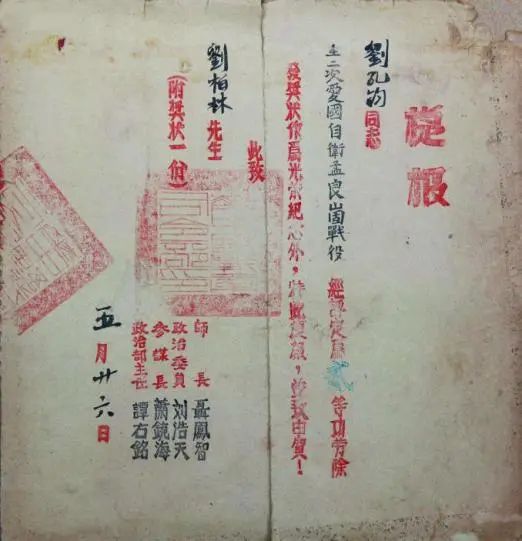 捷报
劉孔昀同志
在二次愛國自衛孟良崮戰役 經評定爲貳等功勞除
發獎狀作爲光榮紀念外，特此捷報，並致由賀！
此致
劉柏林先生
（附獎狀一份）
師長 聶鳳智
政治委員 刘浩天
參謀長 蕭鏡海
政治部主任 譚右銘
五月廿六日